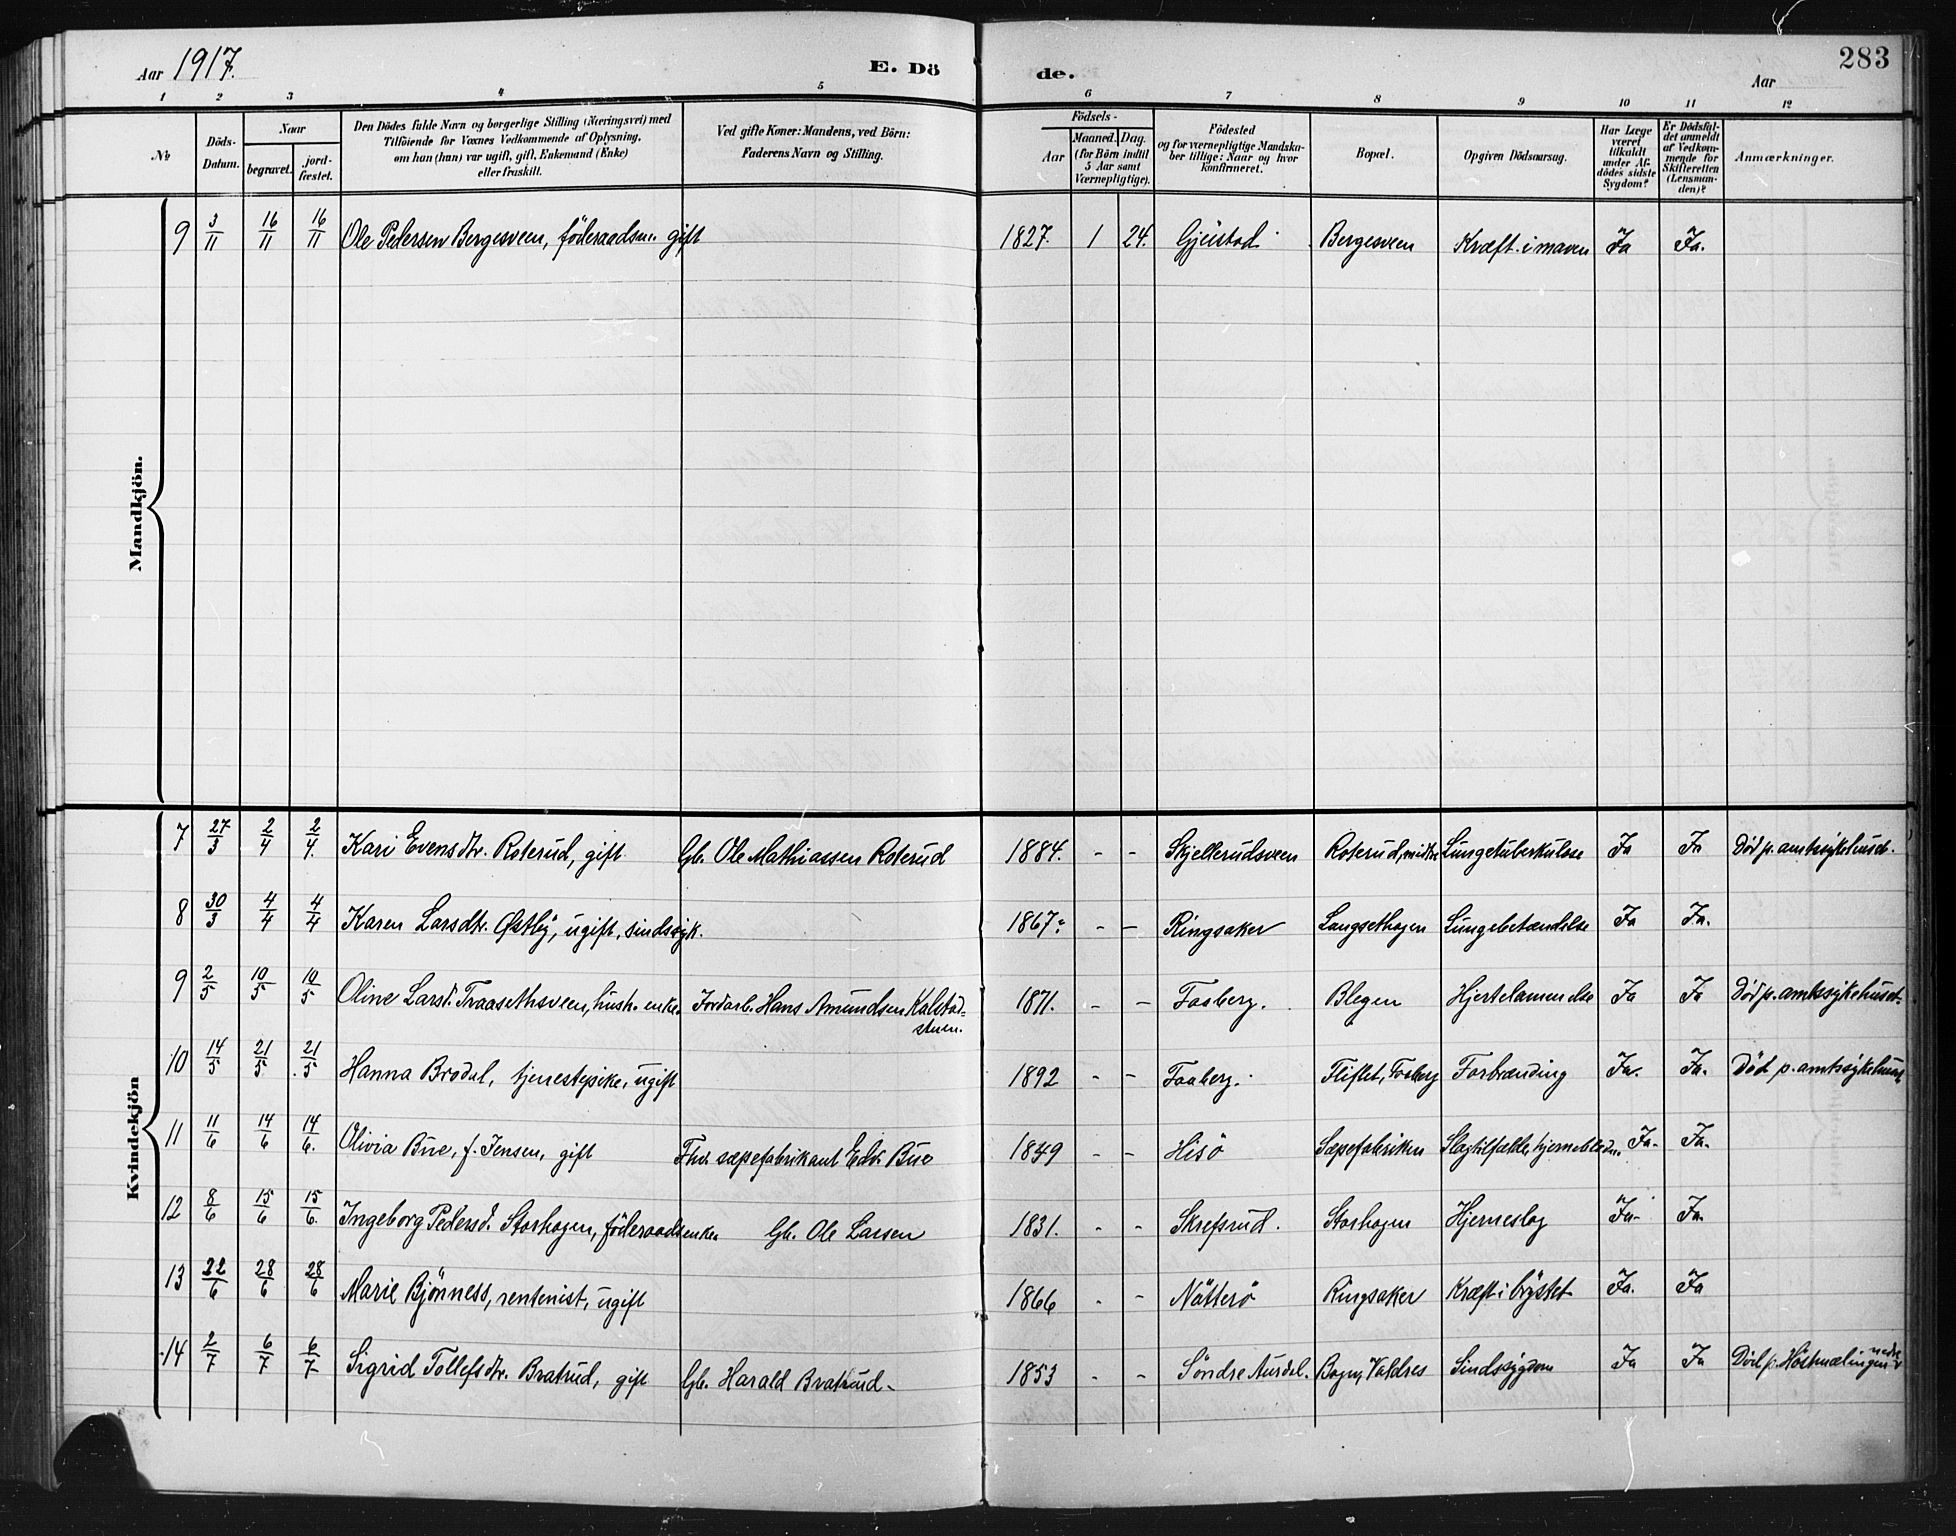 Aar 1917. E. Dö de. Aar 283
1 2 3 4 5 6 7 8 9 10 11 12
No Döds-Datum. Naar begravet. jord-fæstet. Den Dödes fulde Navn og borgerlige Stilling (Næringsvei) med Tilföiende for Voxnes Vedkommende af Oplysning, om han (hun) var ugift, gift, Enkemand (Enke) eller fraskilt. Ved gifte Koner: Mandens, ved Börn: Faderens Navn og Stilling. Födsels- Aar Maaned. Dag. (for Börn indtil 5 Aar samt Værnepligtige). Födested og for værnepligtige Mandska-ber tillige: Naar og hvor konfirmeret. Bopæl. Opgiven Dödsaarsag. Har Læge været tilkaldt under Af-dödes sidste Sygdom? Er Dödsfal-det anmeldt af Vedkom-mende for Skifteretten (Lensman-den)? Anmærkninger.
Mandkjön.
9 3/11 16/11 16/11 Ole Pedersen Bergesveen, föderaadsm. gift 1827. 1 24. Gjeistad Bergesveen Kræft i maven Ja Ja.
Kvindekjön
7 27/3 2/4 2/4. Kari Evensdtr. Roterud, gift Gb. Ole Mathiassen Roterud 1884. - - Skjellerudsveen Roterud, midtre Lungetuberkulose Ja Ja Död p. amtssykehuset.
8 30/3 4/4 4/4 Karen Larsdtr. Østby, ugift, sindssyk. 1867. - - Ringsaker Langsethagen Lungebetændelse Ja Ja.
9 2/5 10/5 10/5 Oline Larsd. Traasethsveen, hush. enke. Jordarb. Hans Amundsen Kalstad-
stuen. 1871. - - Faaberg. Blegen Hjertelammelse Ja Ja Död p. amtssykehuset.
10 14/5 21/5 21/5 Hanna Brodal, tjenestepike, ugift 1892 - - Faaberg. Fliflet, Faaberg Forbrænding Ja. Ja. Död p. amtssykehuset
11 11/6 14/6 14/6. Olivia Bue, f. Jensen, gift Fhv. sæpefabrikant Edv. Bue 1849 - - Hisö Sæpefabriken Slagtilfælde, hjerneblödn. Ja. Ja.
12 8/6 15/6 15/6. Ingeborg Pedersd. Storhagen, föderaadsenke. Gb. Ole Larsen 1831. - - Skrefsrud. Storhagen Hjerneslag Ja. Ja.
13 22/6 28/6 28/6 Marie Bjönness, rentenist, ugift 1866 - - Nötterö Ringsaker Kræft i brystet Ja. Ja
14 2/7 6/7 6/7 Sigrid Tollefsdtr. Bratrud, gift Gb. Harald Bratrud. 1853 - - Söndre Aurdal. Bagn, Valdres Sindssygdom Ja Ja Död p.